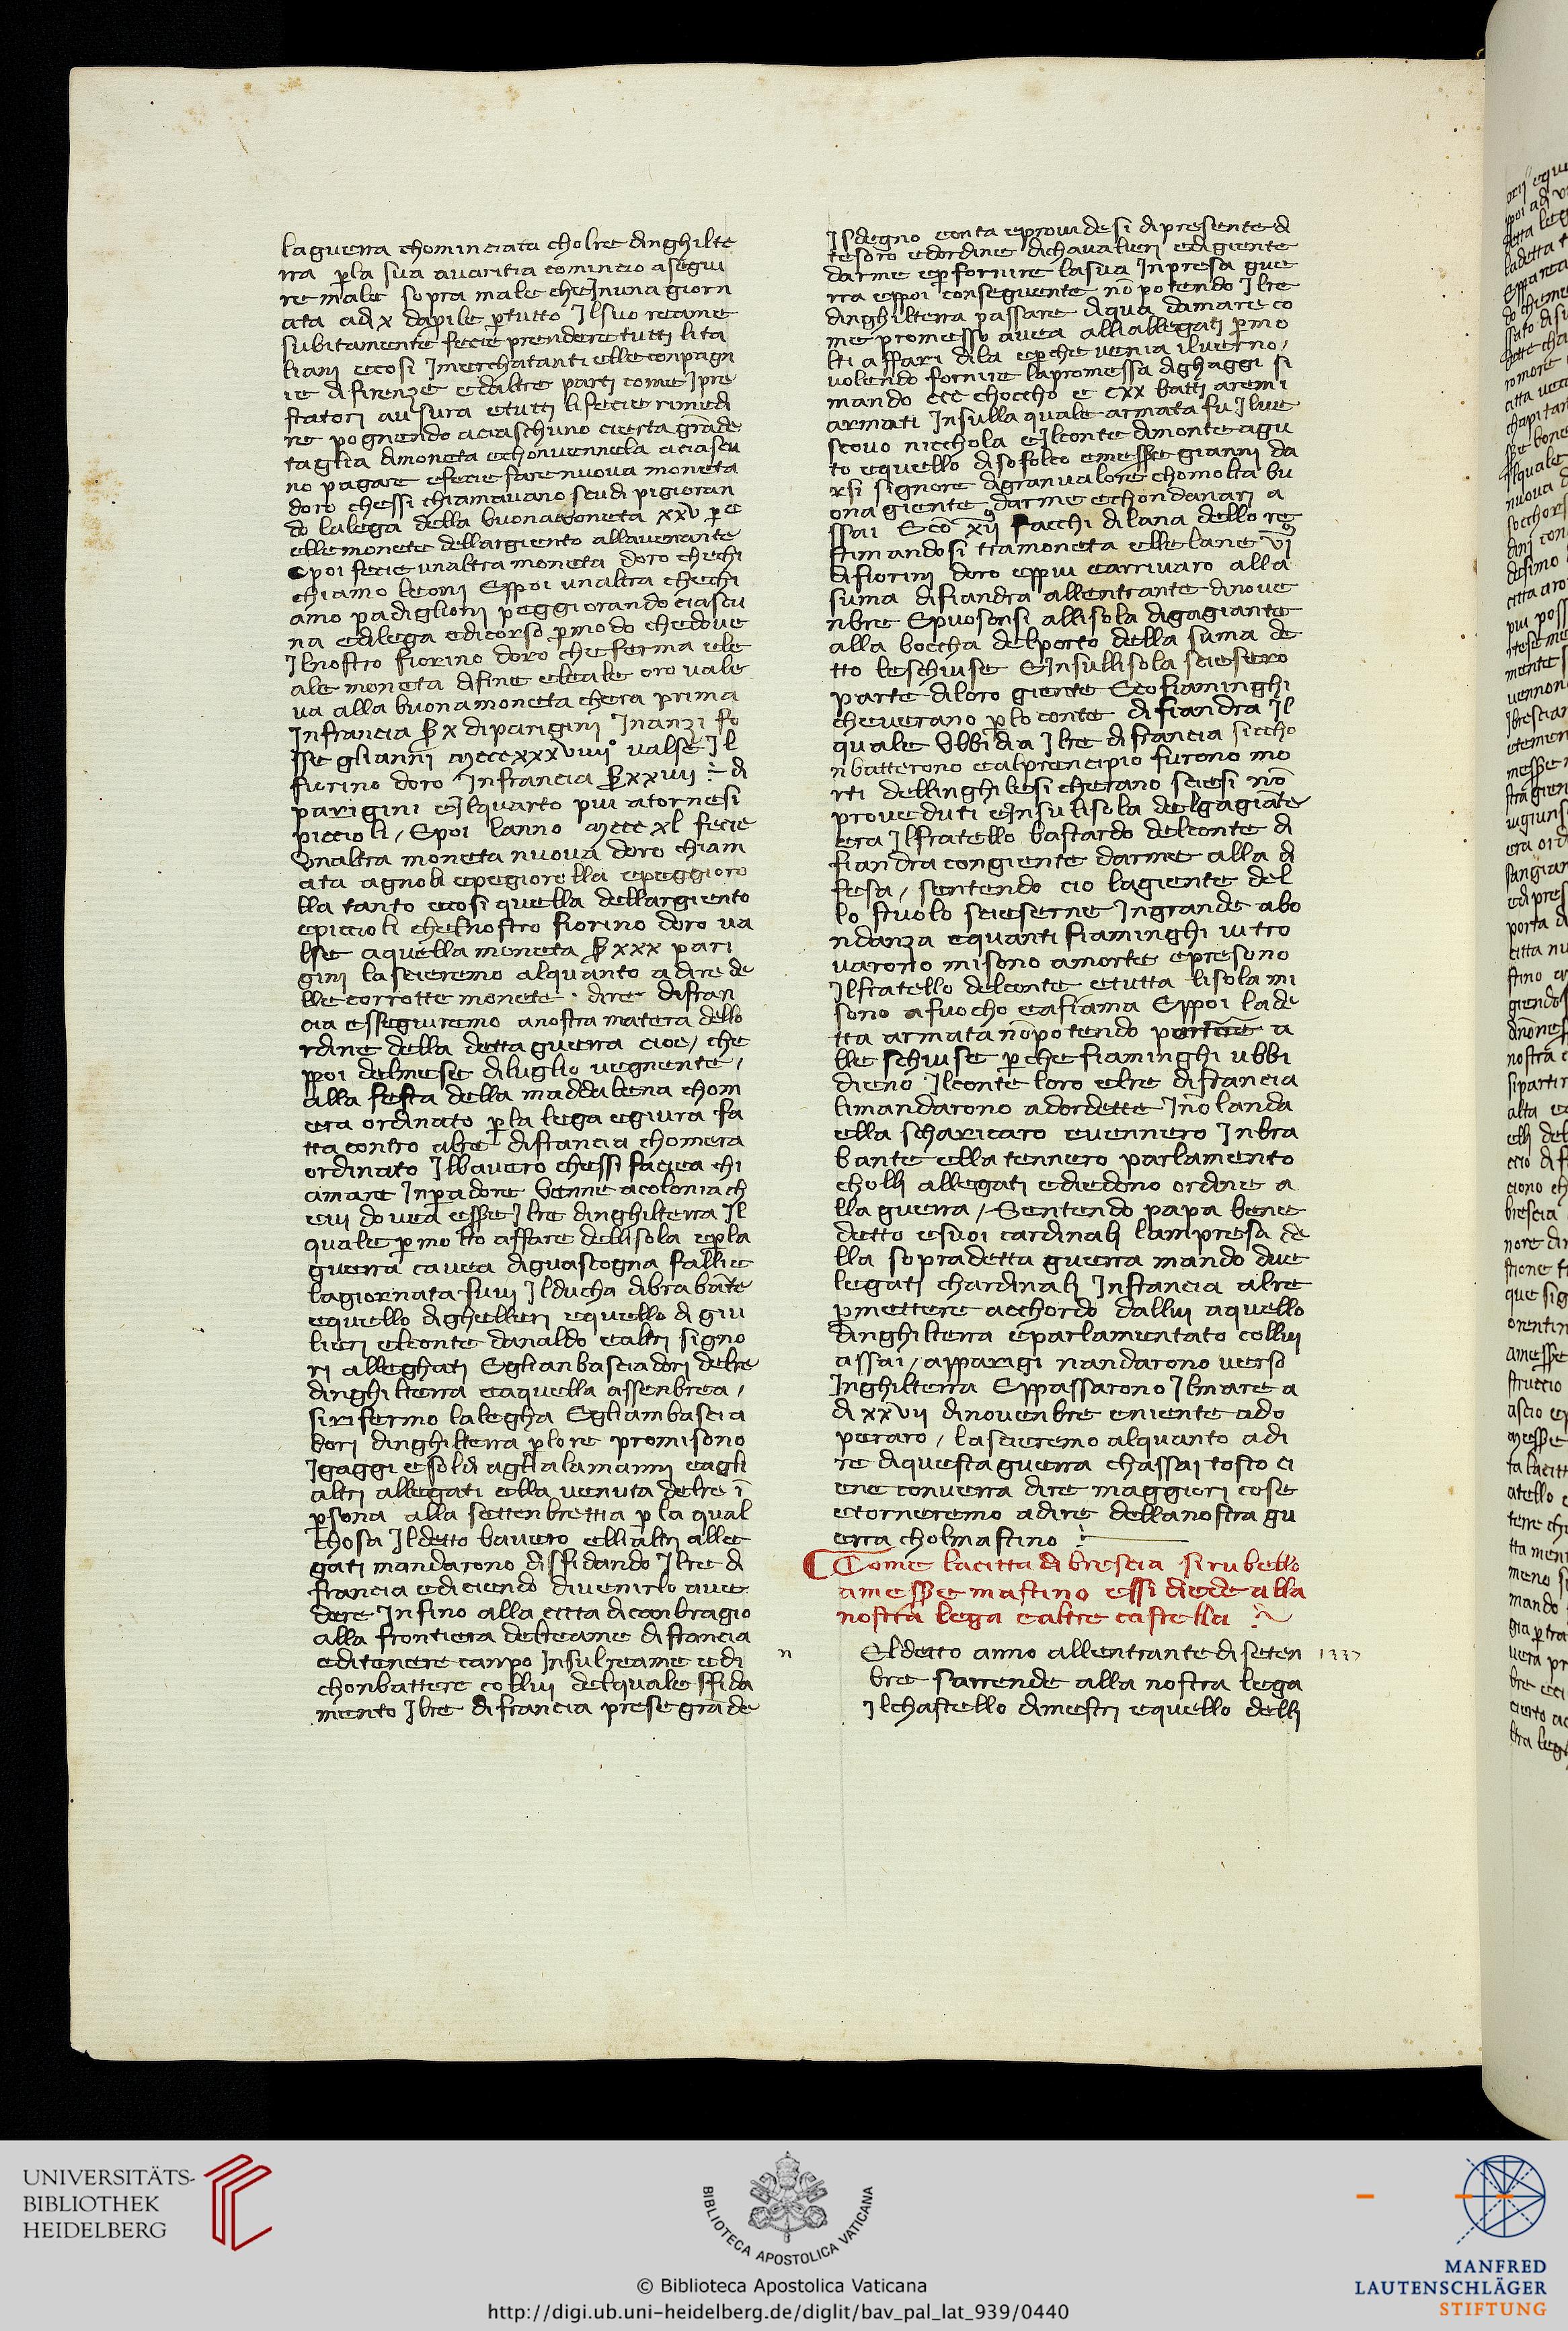 laguerra chominciata cholre dinghilte
rra p̱la sua avaritia comincio asegui
re male sopra male che Jnuna giorn
ata adj x dapile p̱tutto Jlsuo reame
subitamente fecie prendere tutti lita
liani ecosi Jmerchatanti elle conpagn
ie di firenze edaltre parti come Jpre
statori ausura etutti li fecie rimedi
re pognendo aciaschuno cierta grāde
taglia dimoneta echonvennela aciascu
no pagare efecie fare nuova moneta
doro chessi chiamavano scudi pigioran
do lalega della buona moneta xxv p̱ c
elle moneta dellargiento allavenante
epoi fecie unaltra moneta doro chechi
chiamo leoni Eppoi unaltra chechi
amo padiglioni peggiorando ciascu
na edilega edicorso p̱modo chedove
Jlnostro fiorino doro che ferma ele
ale moneta di fine eleale oro vale
va alla buona moneta chera prima
Jnfrancia ꝑ x diparigini Jnanzi fo
sse glianni mcccxxxviiij° valse Jl
fiorino doro Jnfrancia ꝑ xxiiij ÷ di
parigini eJlquarto piu atornesi
piccioli / Epoi lanno mccc xl fecie
Unaltra moneta nuova doro chiam
ata agnoli epegiorella epeggioro
lla tanto ecosi quella dellargiento
epiccioli chelnostro fiorino doro va
lse aquella moneta ꝑ xxx pari
gini lascieremo alquanto adire de
lle corrotte monete · dire difran
cia esseguiremo anostra matera dello
rdine della detta guerra cioe / che
ppoi delmese diluglio vegnente /
alla festa della maddalena chom
era ordinato p̱la lega egiura fa
tta contro alre difrancia chomera
ordinato Jlbavero chessi faciea chi
amare Jnp̱adore venne acolonia ch
eivi dovea esse Jlre dinghilterra Jl
quale p̱molto affare dellisola ep̱la
guerra cavea diguascogna fallie
lagiornata fuvi Jlducha dibrabāte
equello dighelleri equello di giu
lieri elconte danaldo ealtri signo
ri alleghati Eglianbasciadori delre
dinghilterra eaquella assenbrea /
sirifermo lalegha Egliambascia
dori dinghilterra p̱lore promisono
Jgaggi esoldi aglialamanni eagli
altri allegati ella venuta delre ī
p̱sona alla settenbreттia p̱la qual
chosa Jldetto bavero elli altri alle
gati mandarono disfidando Jlre di
francia ediciendo divenirlo ave
dere Jnfino alla citta dicanbragio
alla frontiera delreame difrancia
editenere canpo Jnsulreame edi
chonbattere collui delquale sfida
mento Jlre difrancia prese grāde
Jsdegno eonta eprovidesi dipresente di
tesoro edordine dichavalieri edigiente
darme ep̱fornire lasua Jnpresa gue
rra eppoi conseguente nō potendo Jlre
dinghilterra passare diqua damare co
me promesso avea alliallegati p̱mo
lti affari dila ep̱che venia ilverno /
volendo fornire lapromessa dighaggi si
mando ccc choccho e cxx batti aremi
armati Jnsulla quale armata fu Jlve
scovo nicchola eJlconte dimonteagu
to equello disofolco emesse gianni da
rsi signore digranvalore chomolta bu
ona giente darme echondanari a
ssai Eco xij sacchi dilana dello re
stimandosi tramoneta ellelane vj
difiorini doro eppiu earrivaro alla
suma difiandra allentrante dinove
nbre Epuosonsi allisola digagiante
alla boccha delporto della suma de
tto leschiuse EJnsullisola sciesero
parte diloro giente Ecofiaminghi
cheverano p̱lo conte difiandra Jl
quale Ubbidia Jlre difrancia siccho
nbatterono ealprencipio furono mo
rti dellinghilesi cherano sciesi nō
proveduti eJnsulisola delgagiāte
era Jlfratello bastardo delconte di
fiandra congiente darme alla di
fesa / sentendo cio lagiente del
lo stuolo scieserne Jngrande abo
ndanza equanti fiaminghi vitro
varono misono amorte epresono
Jlfratello delconte etutta lisola mi
sono afuocho eafiama Eppoi lade
tta armata nōpotendo partire a
lle schiuse p̱che fiaminghi ubbi
dieno Jlconte loro elre difrancia
limandarono adordette Jnolanda
ella scharicaro evennero Jnbra
bante ella tennero parlamento
cholli allegati ediedono ordine a
lla guerra / Sentendo papa bene
detto esuoi cardinali lampresa de
lla sopradetta guerra mando due
legati chardinali Jnfrancia alre
p̱mettere acchordo dallui aquello
dinghilterra eparlamentato collui
assai / apparigi nandarono verso
Jnghilterra Eppassarono Jlmare a
di xxvij dinovenbre eniente ado
peraro / lascieremo alquanto adi
re diquesta guerra chassai tosto ci
ene converra dire maggiori cose
etorneremo adire dellanostra gu
erra cholmastino ÷
Come lacitta di brescia sirubello
amesse mastino essi diede alla
nostra lega ealtre castella
n
Eldetto anno allentrante diseten 1337
bre sarrende alla nostra lega
Jlchastello dimestri equello delli
UNIVERSITÄTS-
BIBLIOTHEK
HEIDELBERG
BIBLIOTECA APOSTOLICA VATICANA
© Biblioteca Apostolica Vaticana
http://digi.ub.uni-heidelberg.de/diglit/bav_pal_lat_939/0440
MANFRED
LAUTENSCHLÄGER
STIFTUNG